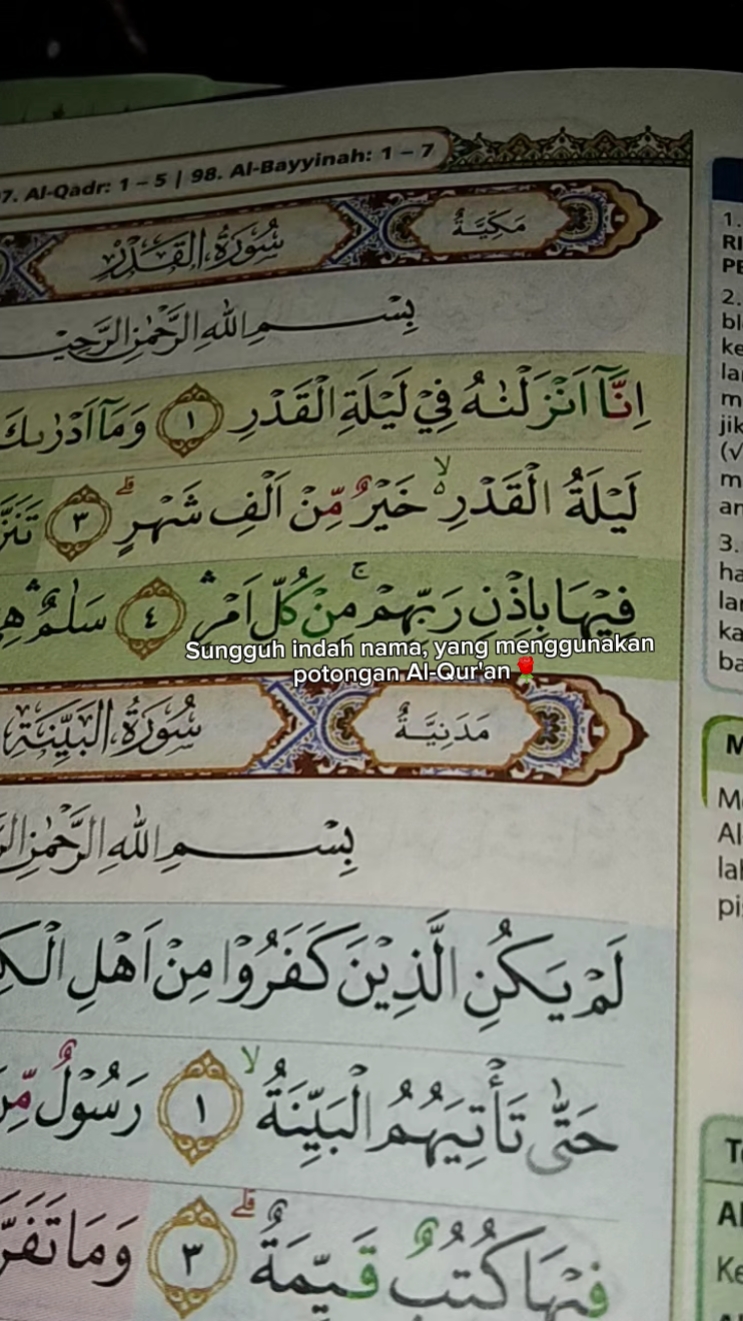 7. Al-Qadr: 1 – 5 | 98. Al-Bayyinah: 1 – 7
مَكِّيَّةٌ
سُوْرَةُ الْقَدْرِ
بِسْمِ اللّٰهِ الرَّحْمٰنِ الرَّحِيْ
اِنَّآ اَنْزَلْنٰهُ فِيْ لَيْلَةِ الْقَدْرِ ١ وَمَآ اَدْرٰىكَ
لَيْلَةُ الْقَدْرِ ەۙ خَيْرٌ مِّنْ اَلْفِ شَهْرٍۗ ٣ تَنَزَّ
فِيْهَا بِاِذْنِ رَبِّهِمْۚ مِنْ كُلِّ اَمْرٍۛ ٤ سَلٰمٌ ۛهِ
Sungguh indah nama, yang menggunakan
potongan Al-Qur'an🌹
مَدَنِيَّةٌ
سُوْرَةُ الْبَيِّنَةِ
بِسْمِ اللّٰهِ الرَّحْمٰنِ
لَمْ يَكُنِ الَّذِيْنَ كَفَرُوْا مِنْ اَهْلِ الْكِ
حَتّٰى تَأْتِيَهُمُ الْبَيِّنَةُۙ ١ رَسُوْلٌ مِّنَ
فِيْهَا كُتُبٌ قَيِّمَةٌۗ ٣ وَمَا تَفَرَّ
1.
RI
PE
2.
bl
ke
la
m
jik
(√
m
ar
3.
ha
la
ka
ba
M
Me
Al
lah
pi
T
Al
Ke